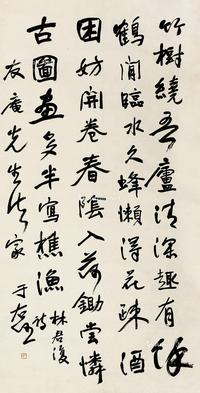 竹樹繞吾廬清深趣有餘
鶴閒臨水久蜂懶得花疎酒
困妨開卷春陰入荷鋤嘗憐
古圖畫多半寫樵漁
林君復詩
友庵先生法家
于右任